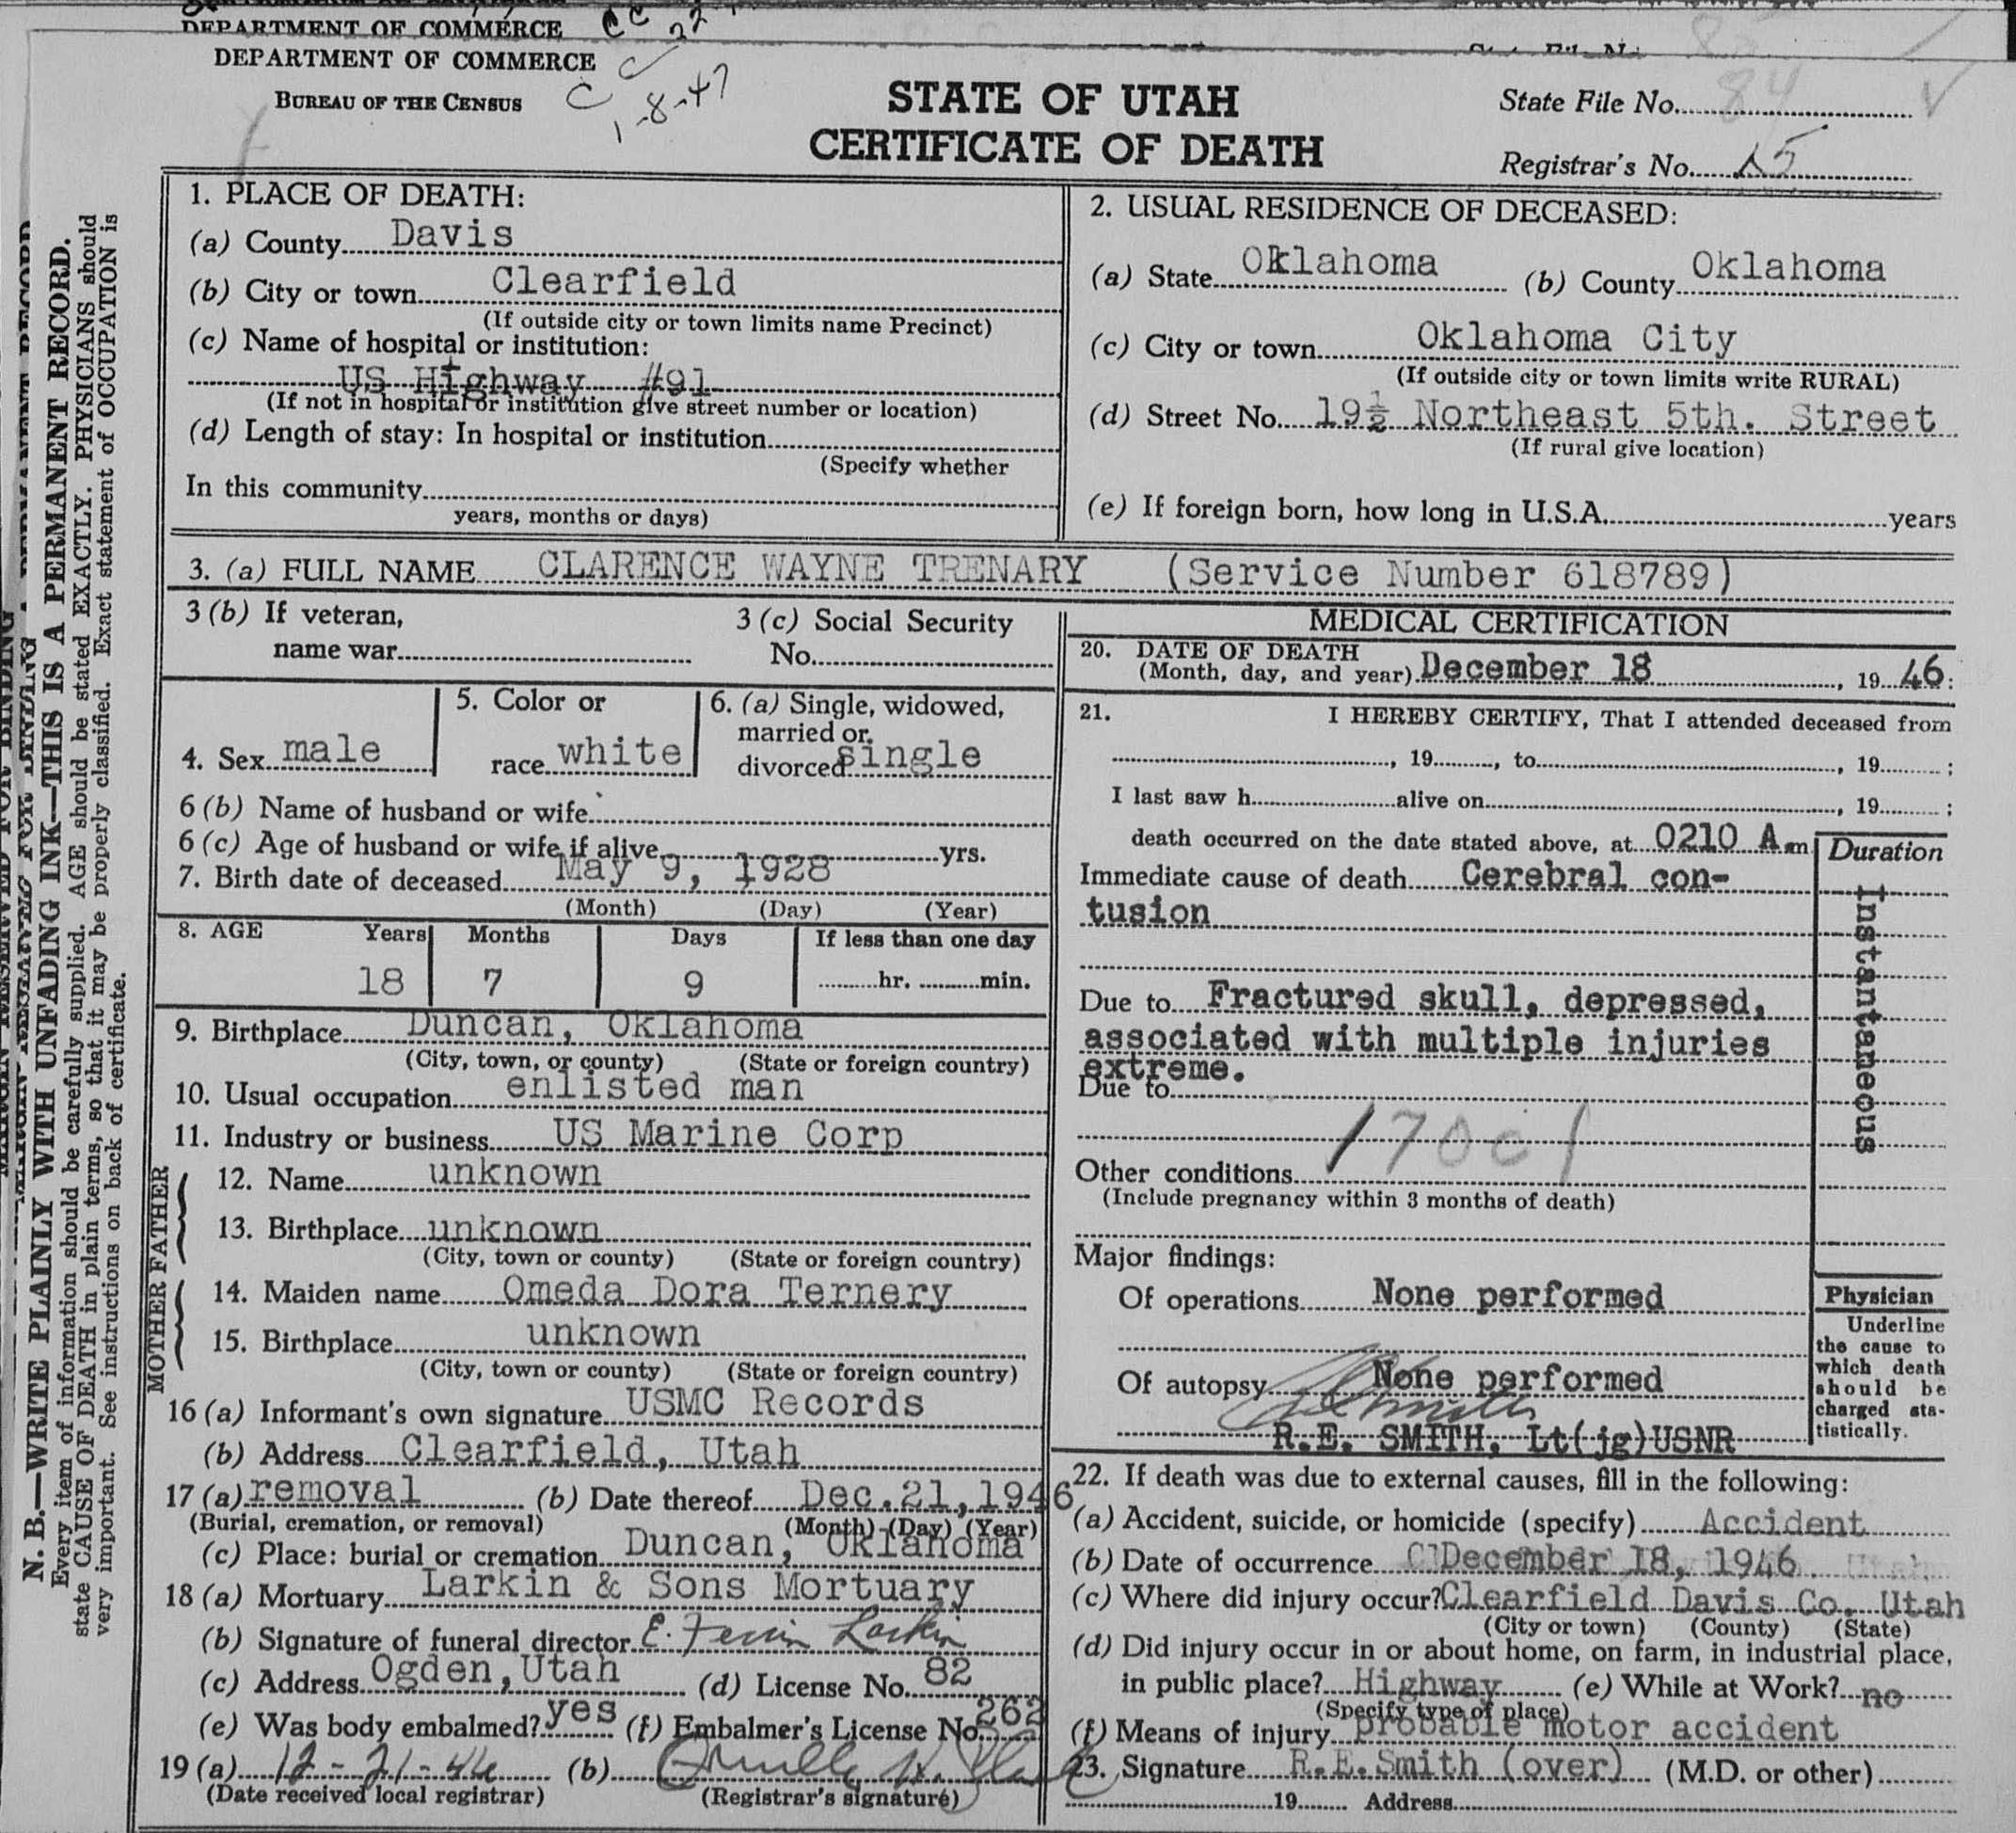 DEPARTMENT OF COMMERCE
DEPARTMENT OF COMMERCE
BUREAU OF THE CENSUS
CC
1-8-47
STATE OF UTAH
CERTIFICATE OF DEATH
State File No. 84
Registrar's No. 15
N. B.—WRITE PLAINLY WITH UNFADING INK—THIS IS A PERMANENT RECORD.
Every item of information should be carefully supplied. AGE should be stated EXACTLY. PHYSICIANS should
state CAUSE OF DEATH in plain terms, so that it may be properly classified. Exact statement of OCCUPATION is
very important. See instructions on back of certificate.
1. PLACE OF DEATH:
(a) County Davis
(b) City or town Clearfield
(If outside city or town limits name Precinct)
(c) Name of hospital or institution:
US Highway #91
(If not in hospital or institution give street number or location)
(d) Length of stay: In hospital or institution
(Specify whether
In this community
years, months or days)
2. USUAL RESIDENCE OF DECEASED:
(a) State Oklahoma (b) County Oklahoma
(c) City or town Oklahoma City
(If outside city or town limits write RURAL)
(d) Street No. 19½ Northeast 5th. Street
(If rural give location)
(e) If foreign born, how long in U.S.A. years
3. (a) FULL NAME CLARENCE WAYNE TRENARY (Service Number 618789)
3 (b) If veteran,
name war
3 (c) Social Security
No.
4. Sex male
5. Color or
race white
6. (a) Single, widowed,
married or
divorced single
6 (b) Name of husband or wife
6 (c) Age of husband or wife if alive yrs.
7. Birth date of deceased May 9, 1928
(Month) (Day) (Year)
8. AGE Years Months Days If less than one day
18 7 9 hr. min.
9. Birthplace Duncan, Oklahoma
(City, town, or county) (State or foreign country)
10. Usual occupation enlisted man
11. Industry or business US Marine Corp
FATHER
12. Name unknown
13. Birthplace unknown
(City, town or county) (State or foreign country)
MOTHER
14. Maiden name Omeda Dora Ternery
15. Birthplace unknown
(City, town or county) (State or foreign country)
16 (a) Informant's own signature USMC Records
(b) Address Clearfield, Utah
17 (a) removal (b) Date thereof Dec.21,1946
(Burial, cremation, or removal) (Month) (Day) (Year)
(c) Place: burial or cremation Duncan, Oklahoma
18 (a) Mortuary Larkin & Sons Mortuary
(b) Signature of funeral director E. Ferrin Larkin
(c) Address Ogden, Utah (d) License No. 82
(e) Was body embalmed? yes (f) Embalmer's License No. 262
19 (a) 12-21-46 (b)
(Date received local registrar) (Registrar's signature)
MEDICAL CERTIFICATION
20. DATE OF DEATH
(Month, day, and year) December 18, 1946:
21. I HEREBY CERTIFY, That I attended deceased from
, 19 , to , 19 ;
I last saw h alive on , 19 ;
death occurred on the date stated above, at 0210 A m
Duration
Immediate cause of death Cerebral con-
tusion
Instantaneous
Due to Fractured skull, depressed,
associated with multiple injuries
extreme.
Due to
170c1
Other conditions
(Include pregnancy within 3 months of death)
Major findings:
Of operations None performed
Of autopsy None performed
R.E. SMITH, Lt(jg)USNR
Physician
Underline
the cause to
which death
should be
charged sta-
tistically.
22. If death was due to external causes, fill in the following:
(a) Accident, suicide, or homicide (specify) Accident
(b) Date of occurrence December 18, 1946
(c) Where did injury occur? Clearfield Davis Co. Utah
(City or town) (County) (State)
(d) Did injury occur in or about home, on farm, in industrial place,
in public place? Highway (e) While at Work? no
(Specify type of place)
(f) Means of injury probable motor accident
23. Signature R.E.Smith (over) (M.D. or other)
19 Address